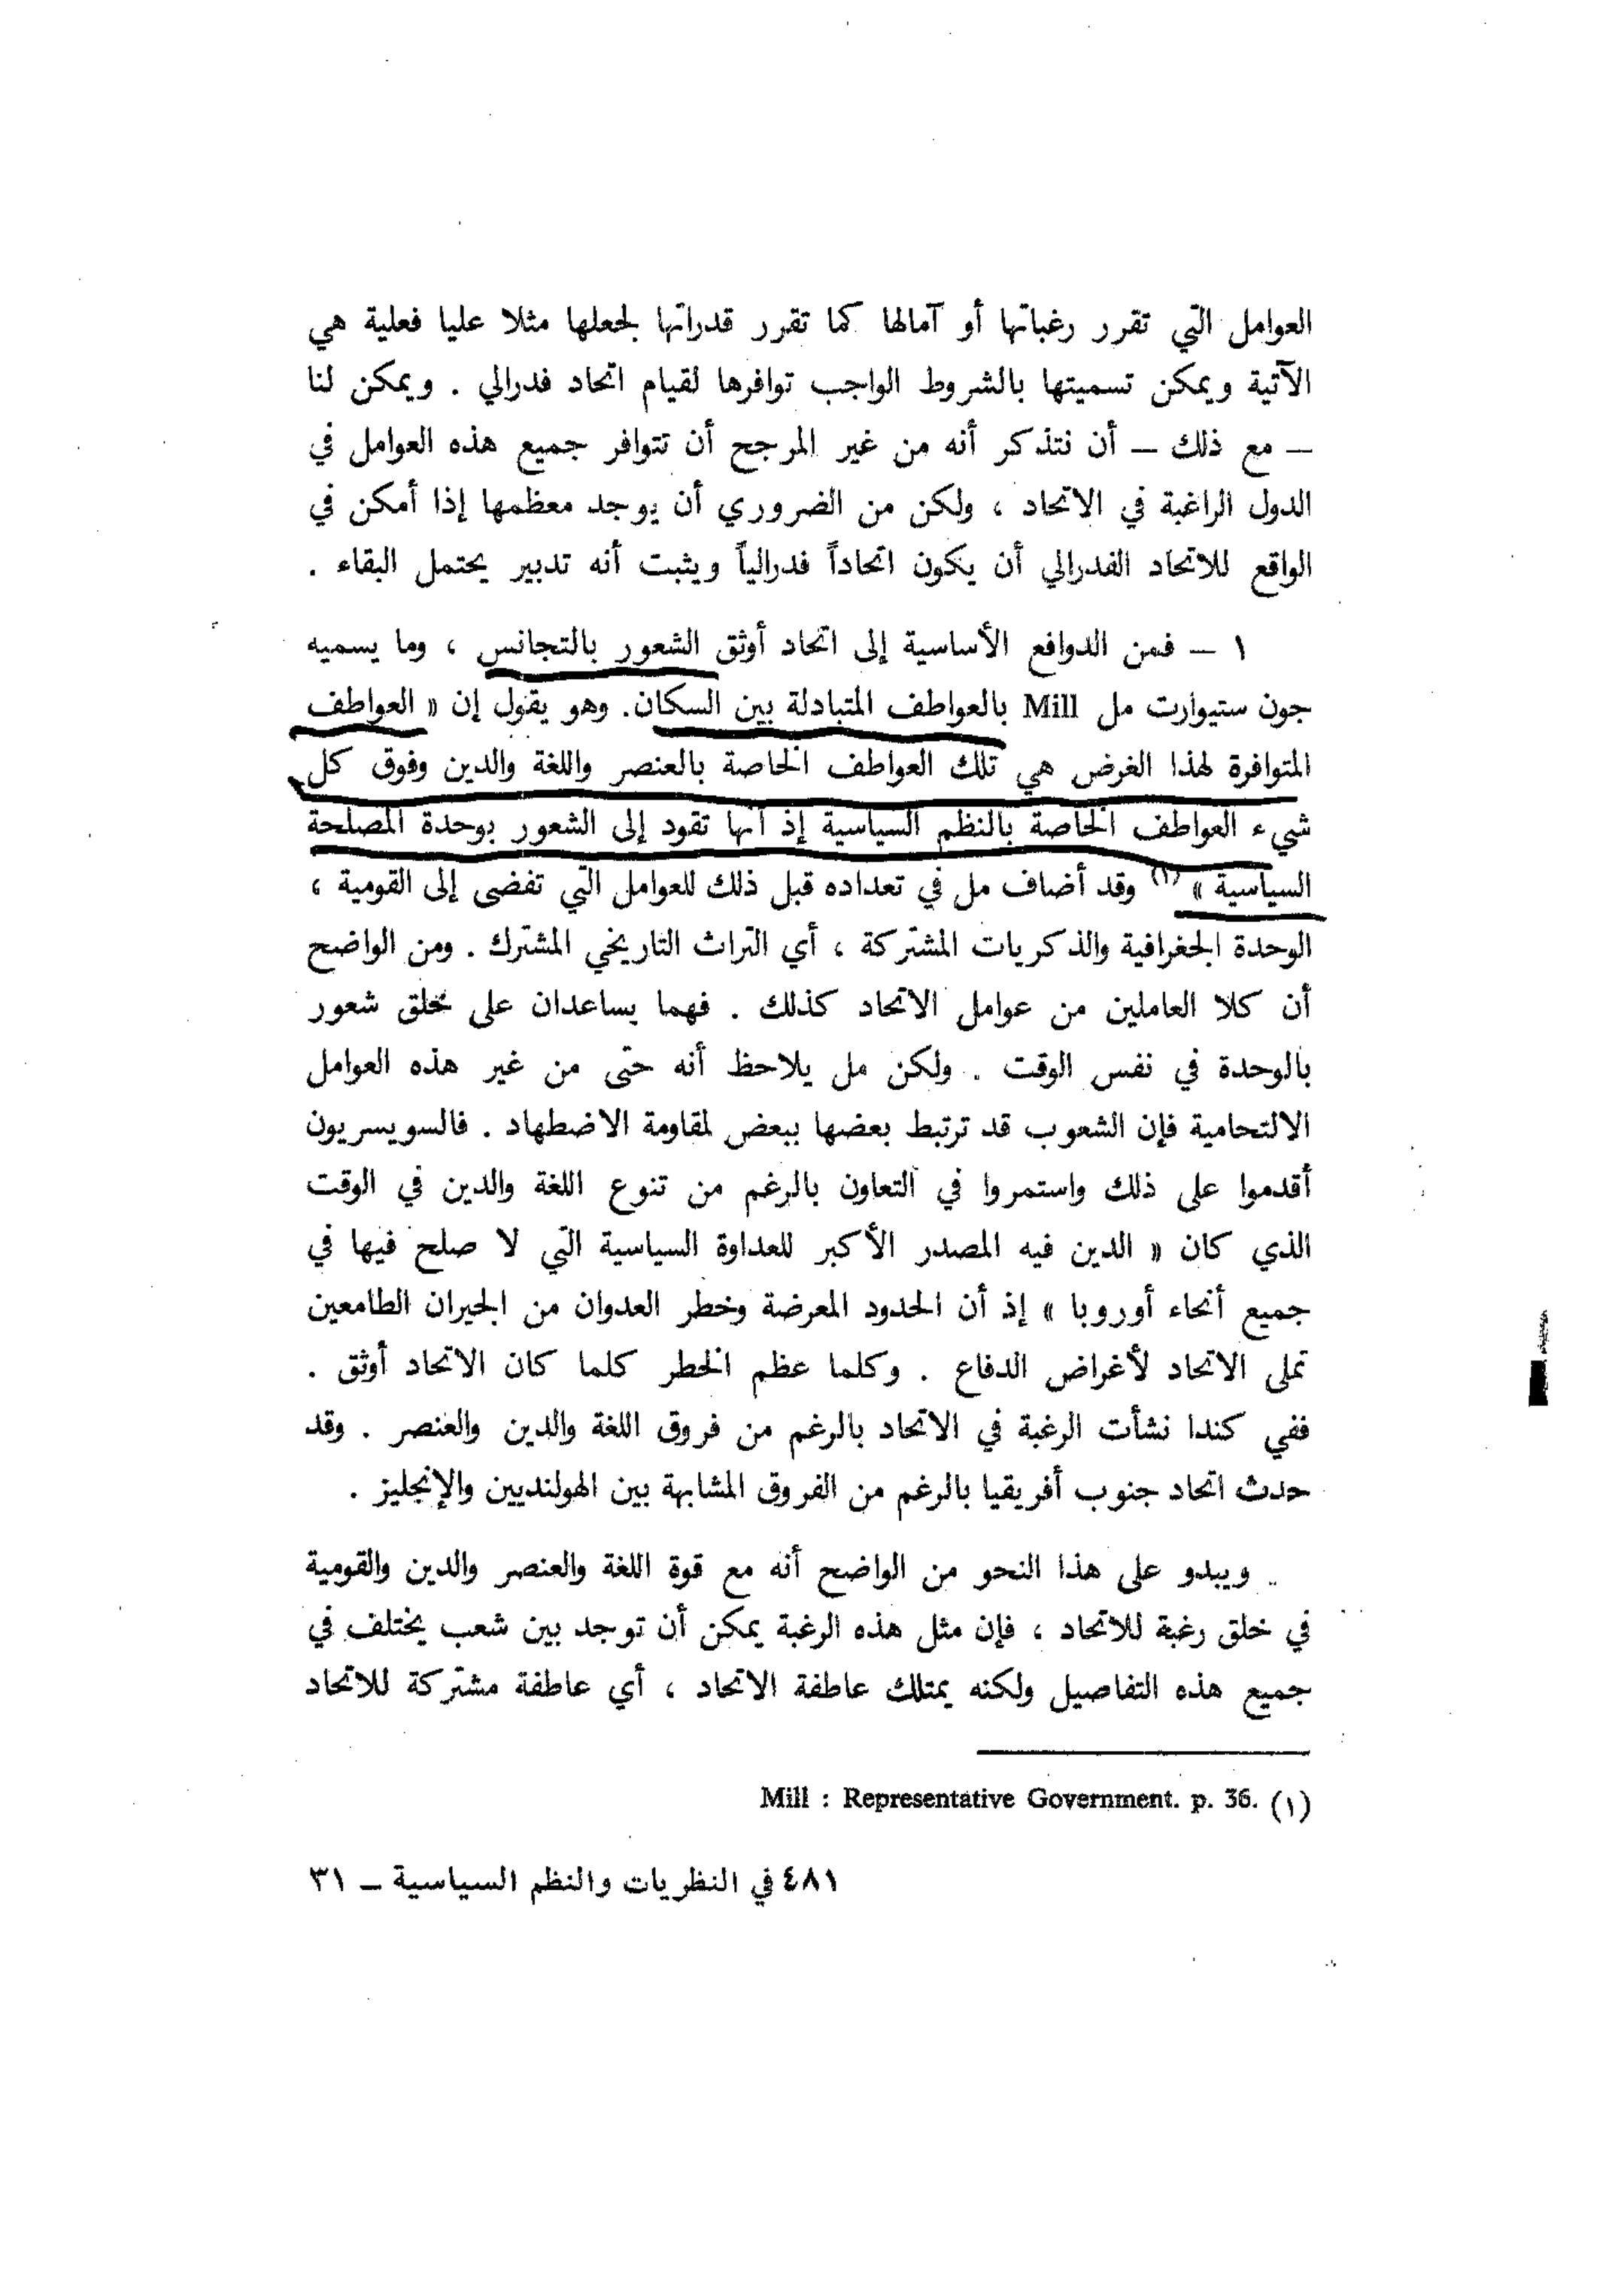 العوامل التي تقرر رغباتها أو آمالها كما تقرر قدراتها لجعلها مثلا عليا فعلية هي
الآتية ويمكن تسميتها بالشروط الواجب توافرها لقيام اتحاد فدرالي . ويمكن لنا
– مع ذلك – أن نتذكر أنه من غير المرجح أن تتوافر جميع هذه العوامل في
الدول الراغبة في الاتحاد ، ولكن من الضروري أن يوجد معظمها إذا أمكن في
الواقع للاتحاد الفدرالي أن يكون اتحاداً فدرالياً ويثبت أنه تدبير يحتمل البقاء .
١ – فمن الدوافع الأساسية إلى اتحاد أوثق الشعور بالتجانس ، وما يسميه
جون ستيوارت مل Mill بالعواطف المتبادلة بين السكان. وهو يقول إن « العواطف
المتوافرة لهذا الغرض هي تلك العواطف الخاصة بالعنصر واللغة والدين وفوق كل
شيء العواطف الخاصة بالنظم السياسية إذ أنها تقود إلى الشعور بوحدة المصلحة
السياسية » (١) وقد أضاف مل في تعداده قبل ذلك للعوامل التي تفضى إلى القومية ،
الوحدة الجغرافية والذكريات المشتركة ، أي التراث التاريخي المشترك . ومن الواضح
أن كلا العاملين من عوامل الاتحاد كذلك . فهما يساعدان على خلق شعور
بالوحدة في نفس الوقت . ولكن مل يلاحظ أنه حتى من غير هذه العوامل
الالتحامية فإن الشعوب قد ترتبط بعضها ببعض لمقاومة الاضطهاد . فالسويسريون
أقدموا على ذلك واستمروا في التعاون بالرغم من تنوع اللغة والدين في الوقت
الذي كان « الدين فيه المصدر الأكبر للعداوة السياسية التي لا صلح فيها في
جميع أنحاء أوروبا » إذ أن الحدود المعرضة وخطر العدوان من الجيران الطامعين
تملى الاتحاد لأغراض الدفاع . وكلما عظم الخطر كلما كان الاتحاد أوثق .
ففي كندا نشأت الرغبة في الاتحاد بالرغم من فروق اللغة والدين والعنصر . وقد
حدث اتحاد جنوب أفريقيا بالرغم من الفروق المشابهة بين الهولنديين والإنجليز .
ويبدو على هذا النحو من الواضح أنه مع قوة اللغة والعنصر والدين والقومية
في خلق رغبة للاتحاد ، فإن مثل هذه الرغبة يمكن أن توجد بين شعب يختلف في
جميع هذه التفاصيل ولكنه يمتلك عاطفة الاتحاد ، أي عاطفة مشتركة للاتحاد
(١) Mill : Representative Government. p. 36.
٤٨١ في النظريات والنظم السياسية – ٣١